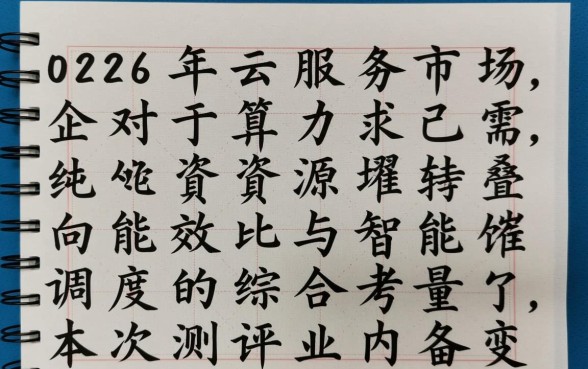 0226年云服务市场,
企对于算力求已需,
纯資資源堆转叠
向能效比与智能
调度的综合考量了,
本次测评业内备变